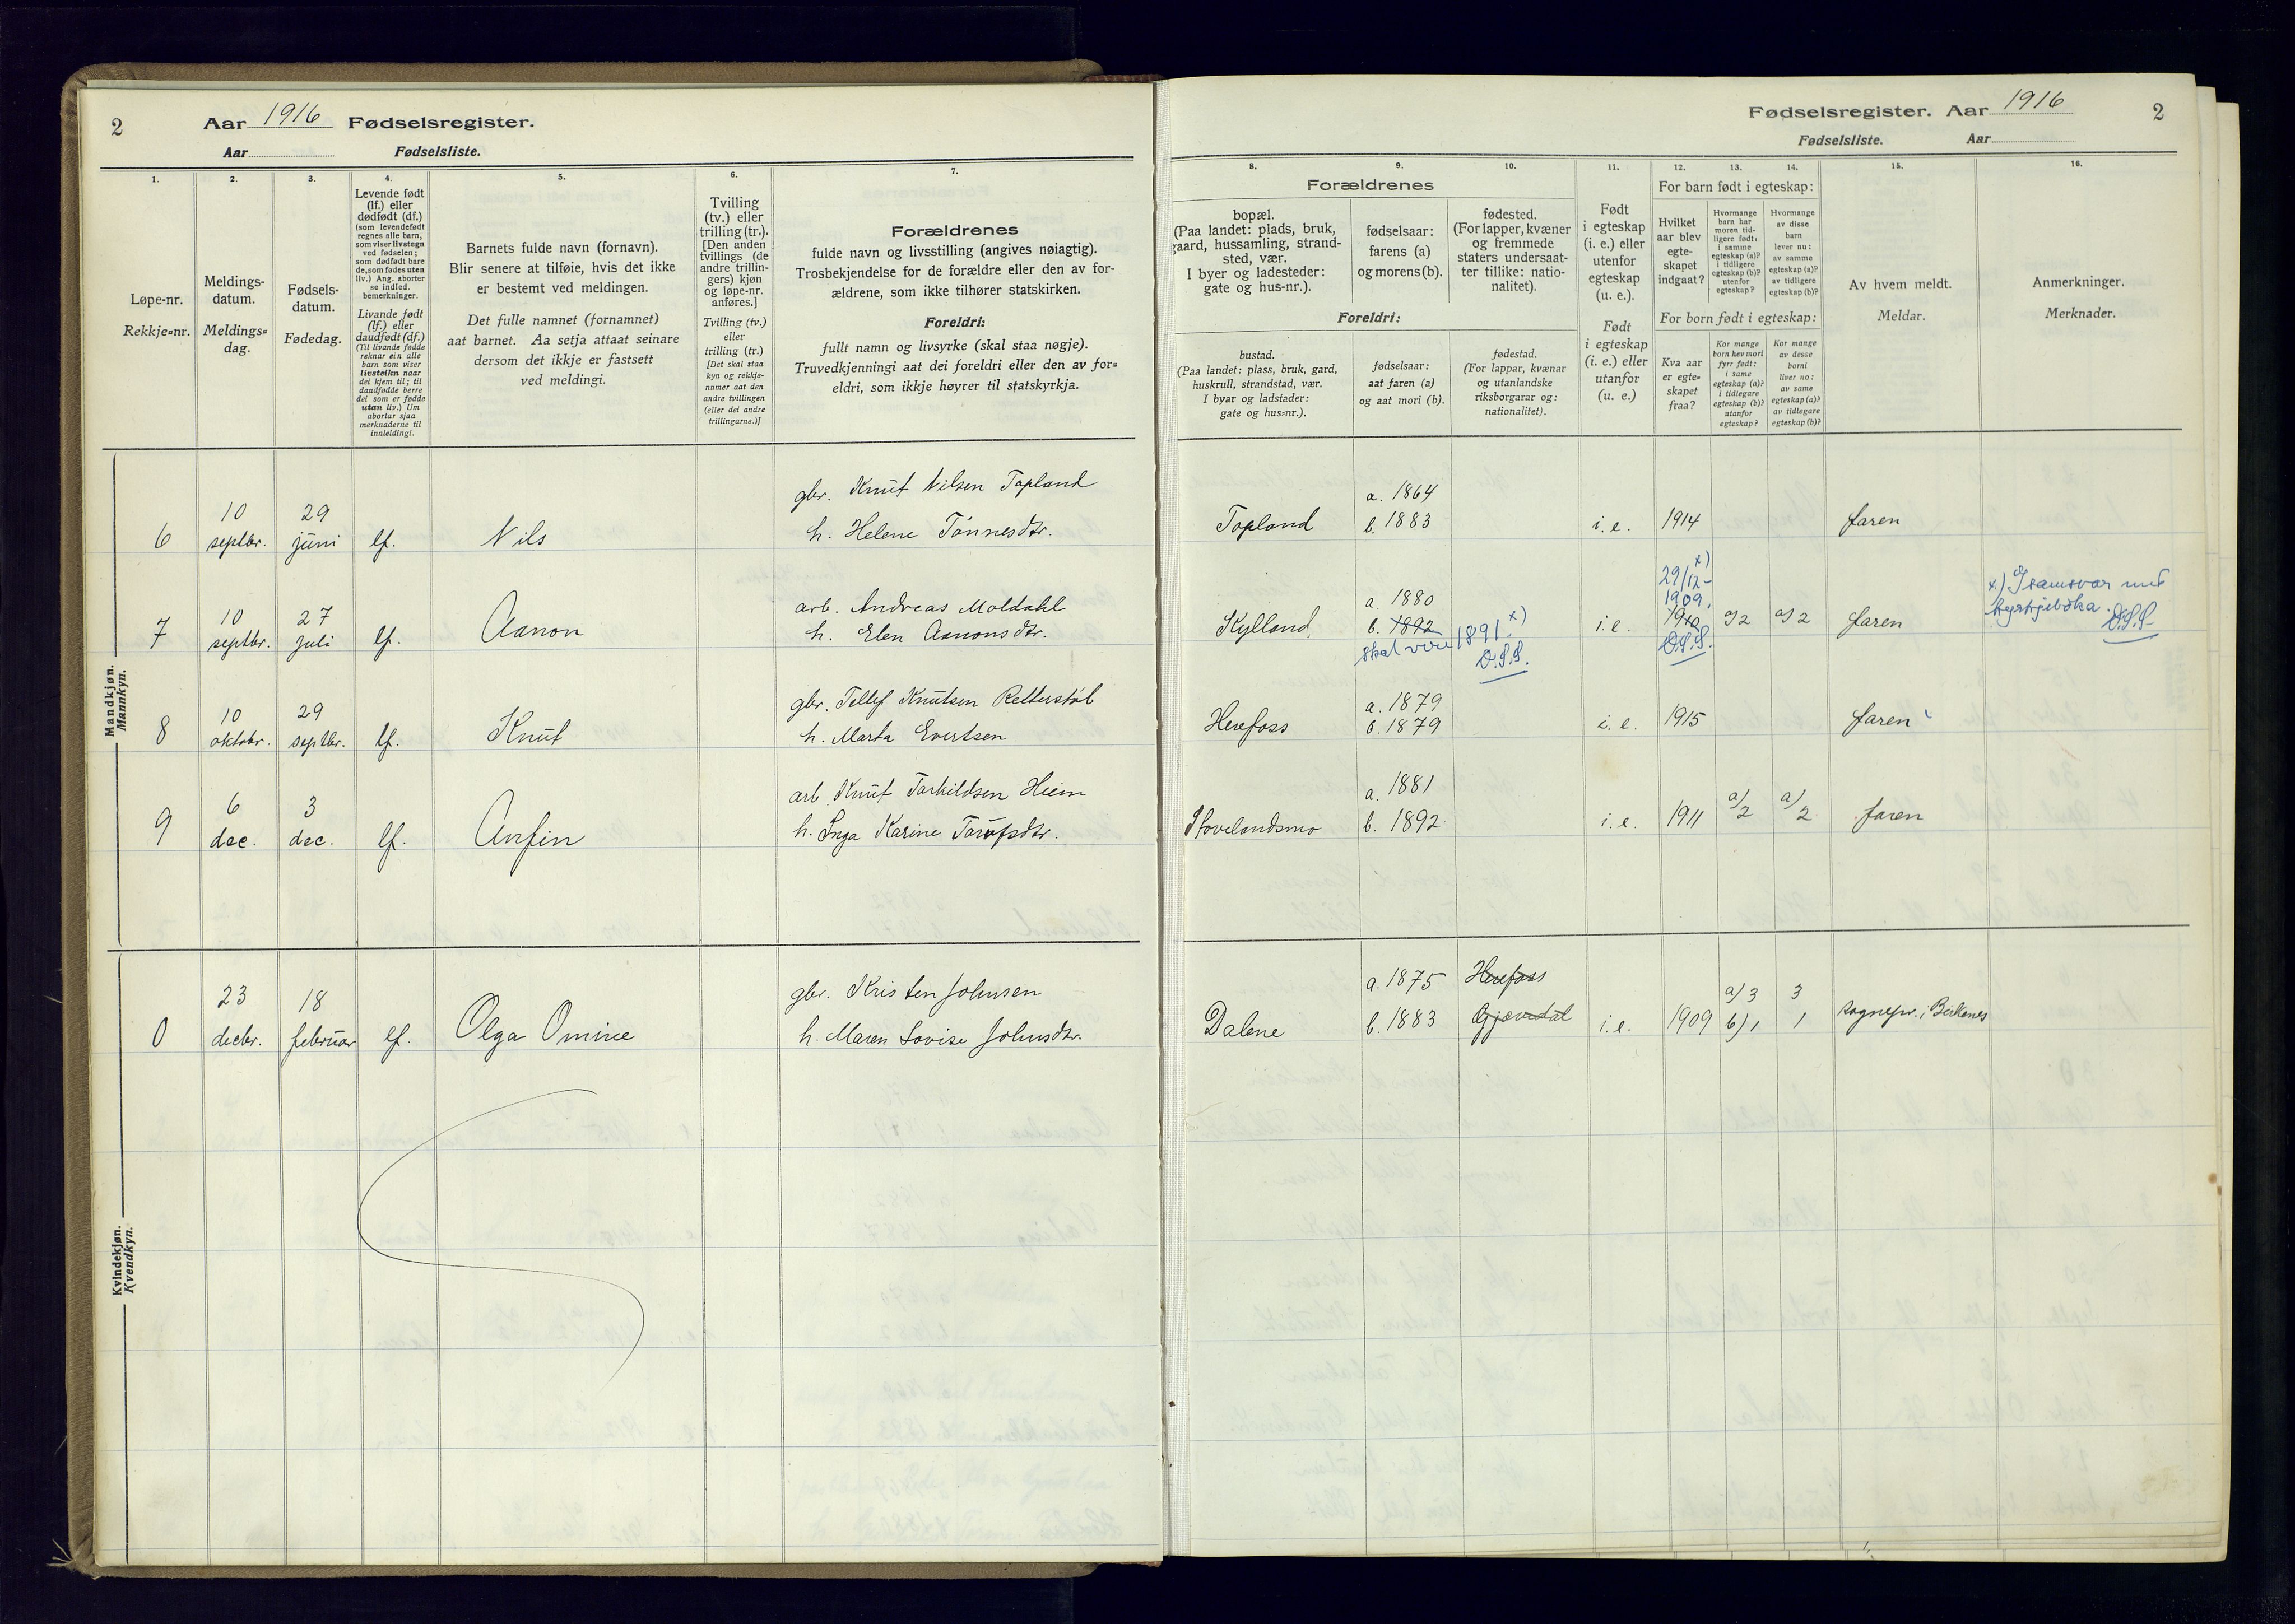 2 Aar 1916 Fødselsregister.
Aar Fødselsliste.
1.
Løpe-nr.
Rekkje=nr.
2.
Meldings-
datum.
Meldings=
dag.
3.
Fødsels-
datum.
Fødedag.
4.
Levende født
(lf.) eller
dødfødt (df.)
(som levendefødt
regnes alle barn,
som viser livstegn
ved fødselen;
som dødfødt bare
de, som fødes uten
liv.) Ang. aborter
se indled.
bemerkninger.
Livande født
(lf.) eller
daudfødt (df.)
(Til livande fødde
reknar ein alle
barn som viser
livsteikn naar
dei kjem til; til
daudfødde berre
dei som er fødde
utan liv.) Um
abortar sjaa
merknaderne til
innleidingi.
5.
Barnets fulde navn (fornavn).
Blir senere at tilføie, hvis det ikke
er bestemt ved meldingen.
Det fulle namnet (fornamnet)
aat barnet. Aa setja attaat seinare
dersom det ikkje er fastsett
ved meldingi.
6.
Tvilling
(tv.) eller
trilling (tr.).
[Den anden
tvillings (de
andre trillin-
gers) kjøn
og løpe-nr.
anføres.]
Tvilling (tv.)
eller
trilling (tr.)
[Det skal staa
kyn og rekkje-
numer aat den
andre tvillingen
(eller dei andre
trillingarne.)]
7.
Forældrenes
fulde navn og livsstilling (angives nøiagtig).
Trosbekjendelse for de forældre eller den av for-
ældrene, som ikke tilhører statskirken.
Foreldri:
fullt namn og livsyrke (skal staa nøgje).
Truvedkjenningi aat dei foreldri eller den av for=
eldri, som ikkje høyrer til statskyrkja.
Mandkjøn.
Mannkyn.
gbr. Knut Nilsen Topland
6 10 septbr. 29 juni lf. Nils h. Helene Tönnesdtr.
arb. Andreas Moldahl
7 10 septbr. 27 juli lf. Aanon h. Elen Aanonsdtr.
gbr. Tellef Knutsen Retterstöl
8 10 oktobr. 29 septbr. lf. Knut h. Marta Evertsen
arb. Knut Tarkildsen Heim
9 6 dec. 3 dec. lf. Anfin h. Inga Karine
Kvindekjøn.
Kvendkyn.
gbr. Kristen Johnsen
0 23 decbr. 18 februar lf. Olga Omine h. Maren Lovise Johnsdtr.
Fødselsregister. Aar 1916 2
Fødselsliste. Aar
8. 9. 10.
Forældrenes
bopæl.
(Paa landet: plads, bruk,
gaard, hussamling, strand-
sted, vær.
I byer og ladesteder:
gate og hus-nr.).
fødselsaar:
farens (a)
og morens (b).
fødested.
(For lapper, kvæner
og fremmede
staters undersaat-
ter tillike: natio-
nalitet).
Foreldri:
bustad.
(Paa landet: plass, bruk, gard,
huskrull, strandstad, vær.
I byar og ladstader:
gate og hus=nr.).
fødselsaar:
aat faren (a)
og aat mori (b).
fødestad.
(For lappar, kvænar
og utanlandske
riksborgarar og:
nationalitet).
11.
Født
i egteskap
(i. e.) eller
utenfor
egteskap
(u. e.).
Født
i egteskap
(i. e.) eller
utanfor
(u. e.)
12. 13. 14.
For barn født i egteskap:
Hvilket
aar blev
egte-
skapet
indgaat?
Hvormange
barn har
moren tid-
ligere født:
i samme
egteskap (a)?
i tidligere
egteskap (b)?
utenfor
egteskap?
Hvormange
av disse
barn
lever nu:
av samme
egteskap (a)?
av tidligere
egteskap (b)?
For born født i egteskap:
Kva aar
er egte=
skapet
fraa?
Kor mange
born hev mori
fyrr født:
i same
egteskap (a)?
i tidlegare
egteskap (b)?
utanfor
egteskap?
Kor mange
av desse
borni
liver no:
av same
egteskap (a)?
av tidlegare
egteskap (b)?
15.
Av hvem meldt.
Meldar.
16.
Anmerkninger.
Merknader.
a. 1864
Topland b. 1883 i.e. 1914 faren
29/12- x)
1909.
a. 1880
Kylland b. 1892 i.e. 1910 a/2 a/2 faren
skal vere 1891. x)
O.S.S. O.S.S.
x) I samsvar med
kyrkjeboka.
O.S.S.
a. 1879
Herefoss b. 1879 i.e. 1915 faren
a. 1881
Hovelandsmo b. 1892 i.e. 1911 a/2 a/2 faren
a. 1875 Herefoss a/3 3
Dalene b. 1883 Gjøvdal i.e. 1909 b/1 1 sognepr. i Birkenes